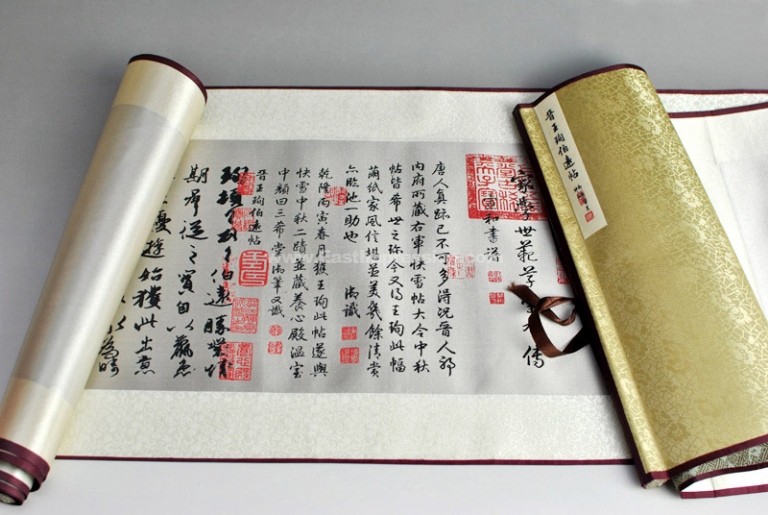 晉王珣伯遠帖
家學世範草有傳
和書譜
唐人真跡已不可多得況晉人耶
內府所藏右軍快雪帖大令中秋
帖皆希世之珍今又得王珣此幅
繭紙家風信堪並美幾餘清賞
亦臨池一助也 御識
乾隆丙寅春月獲王珣此帖遂與
快雪中秋二蹟並藏養心殿溫室
中顏曰三希堂 御筆又識
晉王珣伯遠帖
珣頓首伯遠勝業情
期群從之寶自以羸患
優遊始獲此出意